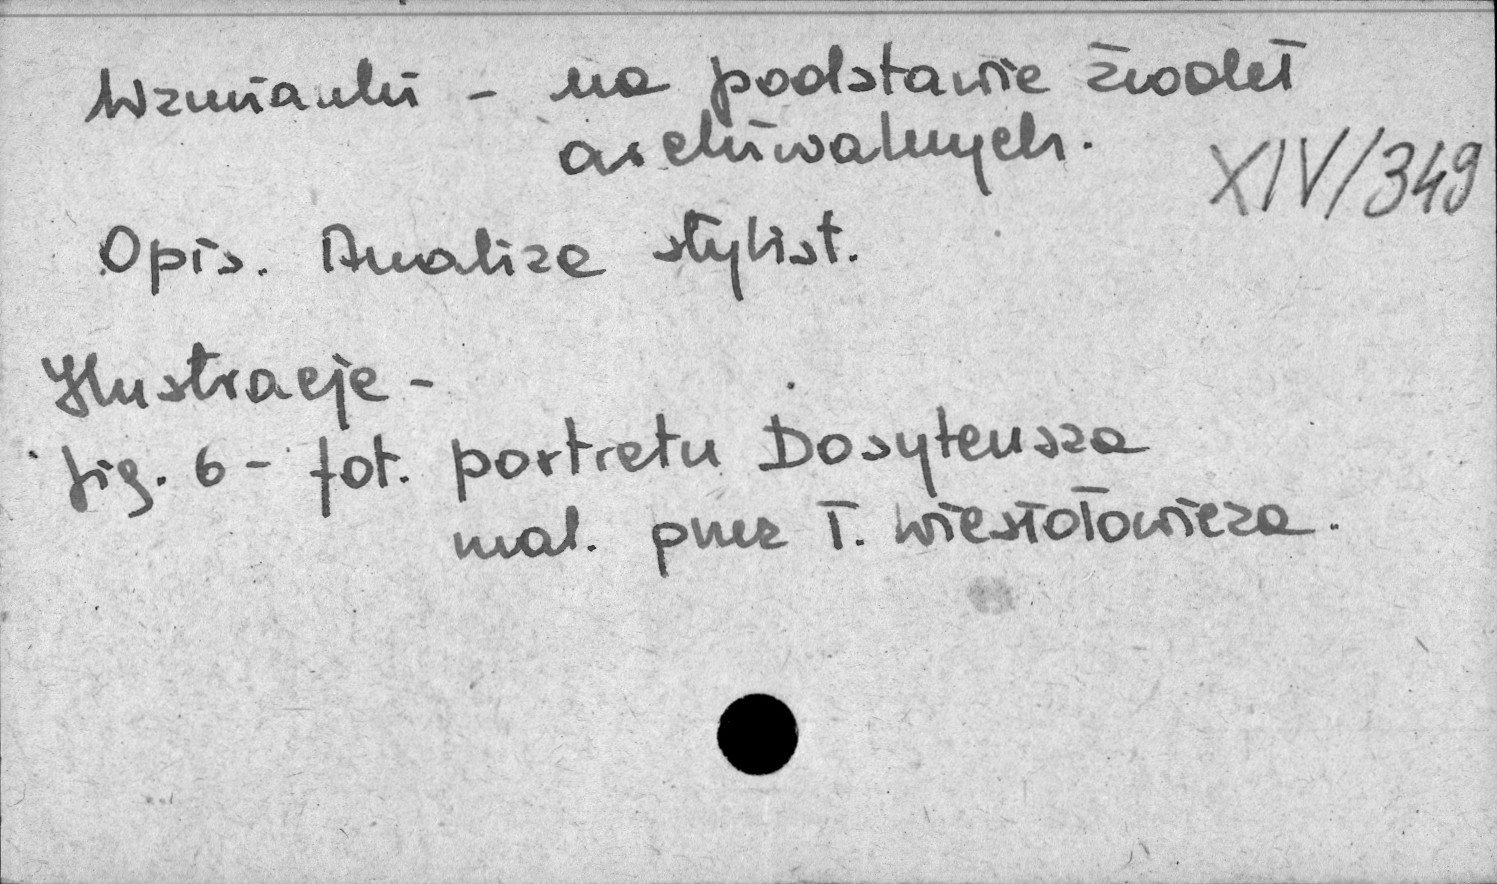 Wzmianki - na podstawie źrodeł
archiwalnych.
XIV/349
Opis. Analiza stylist.
Ilustracje -
fig. 6 - fot. portretu Dosyteusza
mal. przez T. Wiesiołowicza.